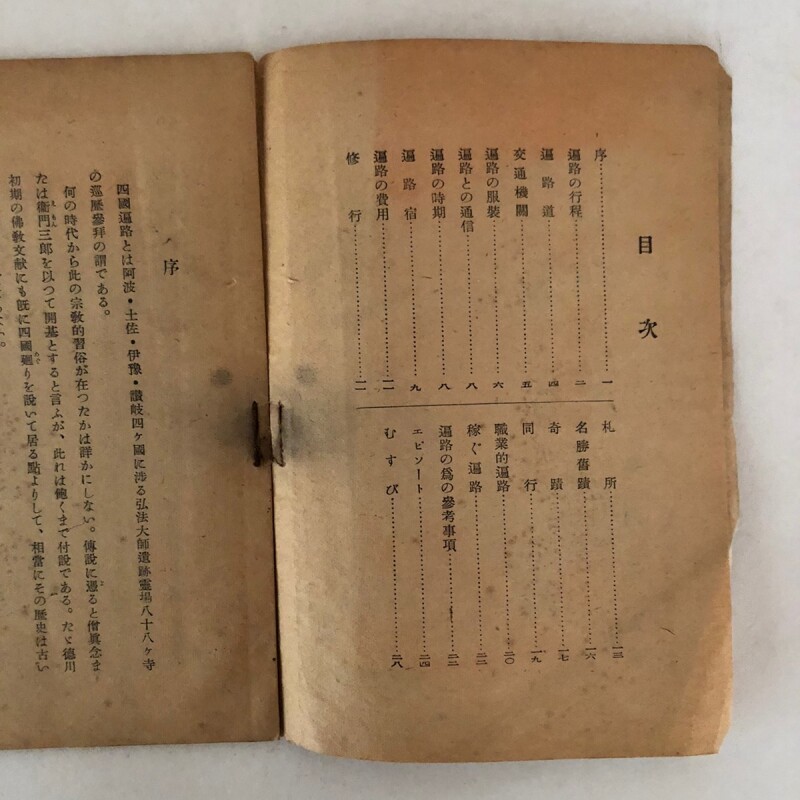 目次
序……一
遍路の行程……二
遍路道……四
交通機關……五
遍路の服裝……六
遍路との通信……八
遍路の時期……八
遍路宿……九
遍路の費用……一一
修行……一一
札所……一三
名勝舊蹟……一六
奇蹟……一七
同行……一九
職業的遍路……二〇
稼ぐ遍路……二二
遍路の爲の參考事項……二三
エピソート……二四
むすび……二八
序
四國遍路とは阿波・土佐・伊豫・讃岐四ヶ國に涉る弘法大師遺跡靈場八十八ヶ寺
の巡歷參拜の謂である。
何の時代から此の宗敎的習俗が在つたかは詳かにしない。傳說に憑ると僧眞念ま
たは衞門三郎を以つて開基とすると言ふが、此れは飽くまで付說である。たゞ德川
初期の佛敎文献にも既に四國廻りを說いて居る點よりして、相當にその歷史は古い